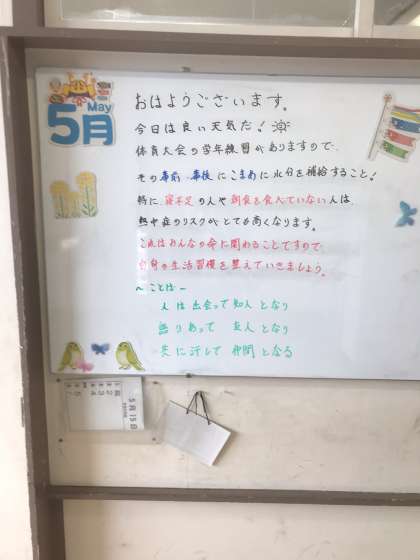 5月
May
おはようございます。
今日は良い天気だ!
体育大会の学年練習がありますので、
その事前・事後にこまめに水分を補給すること!
特に、寝不足の人や朝食を食べていない人は、
熱中症のリスクがとても高くなります。
これはみんなの命に関わることですので、
自身の生活習慣を整えていきましょう。
~ことば~
人は出会って知人となり
語りあって 友人となり
共に汗して 仲間となる
5月15日